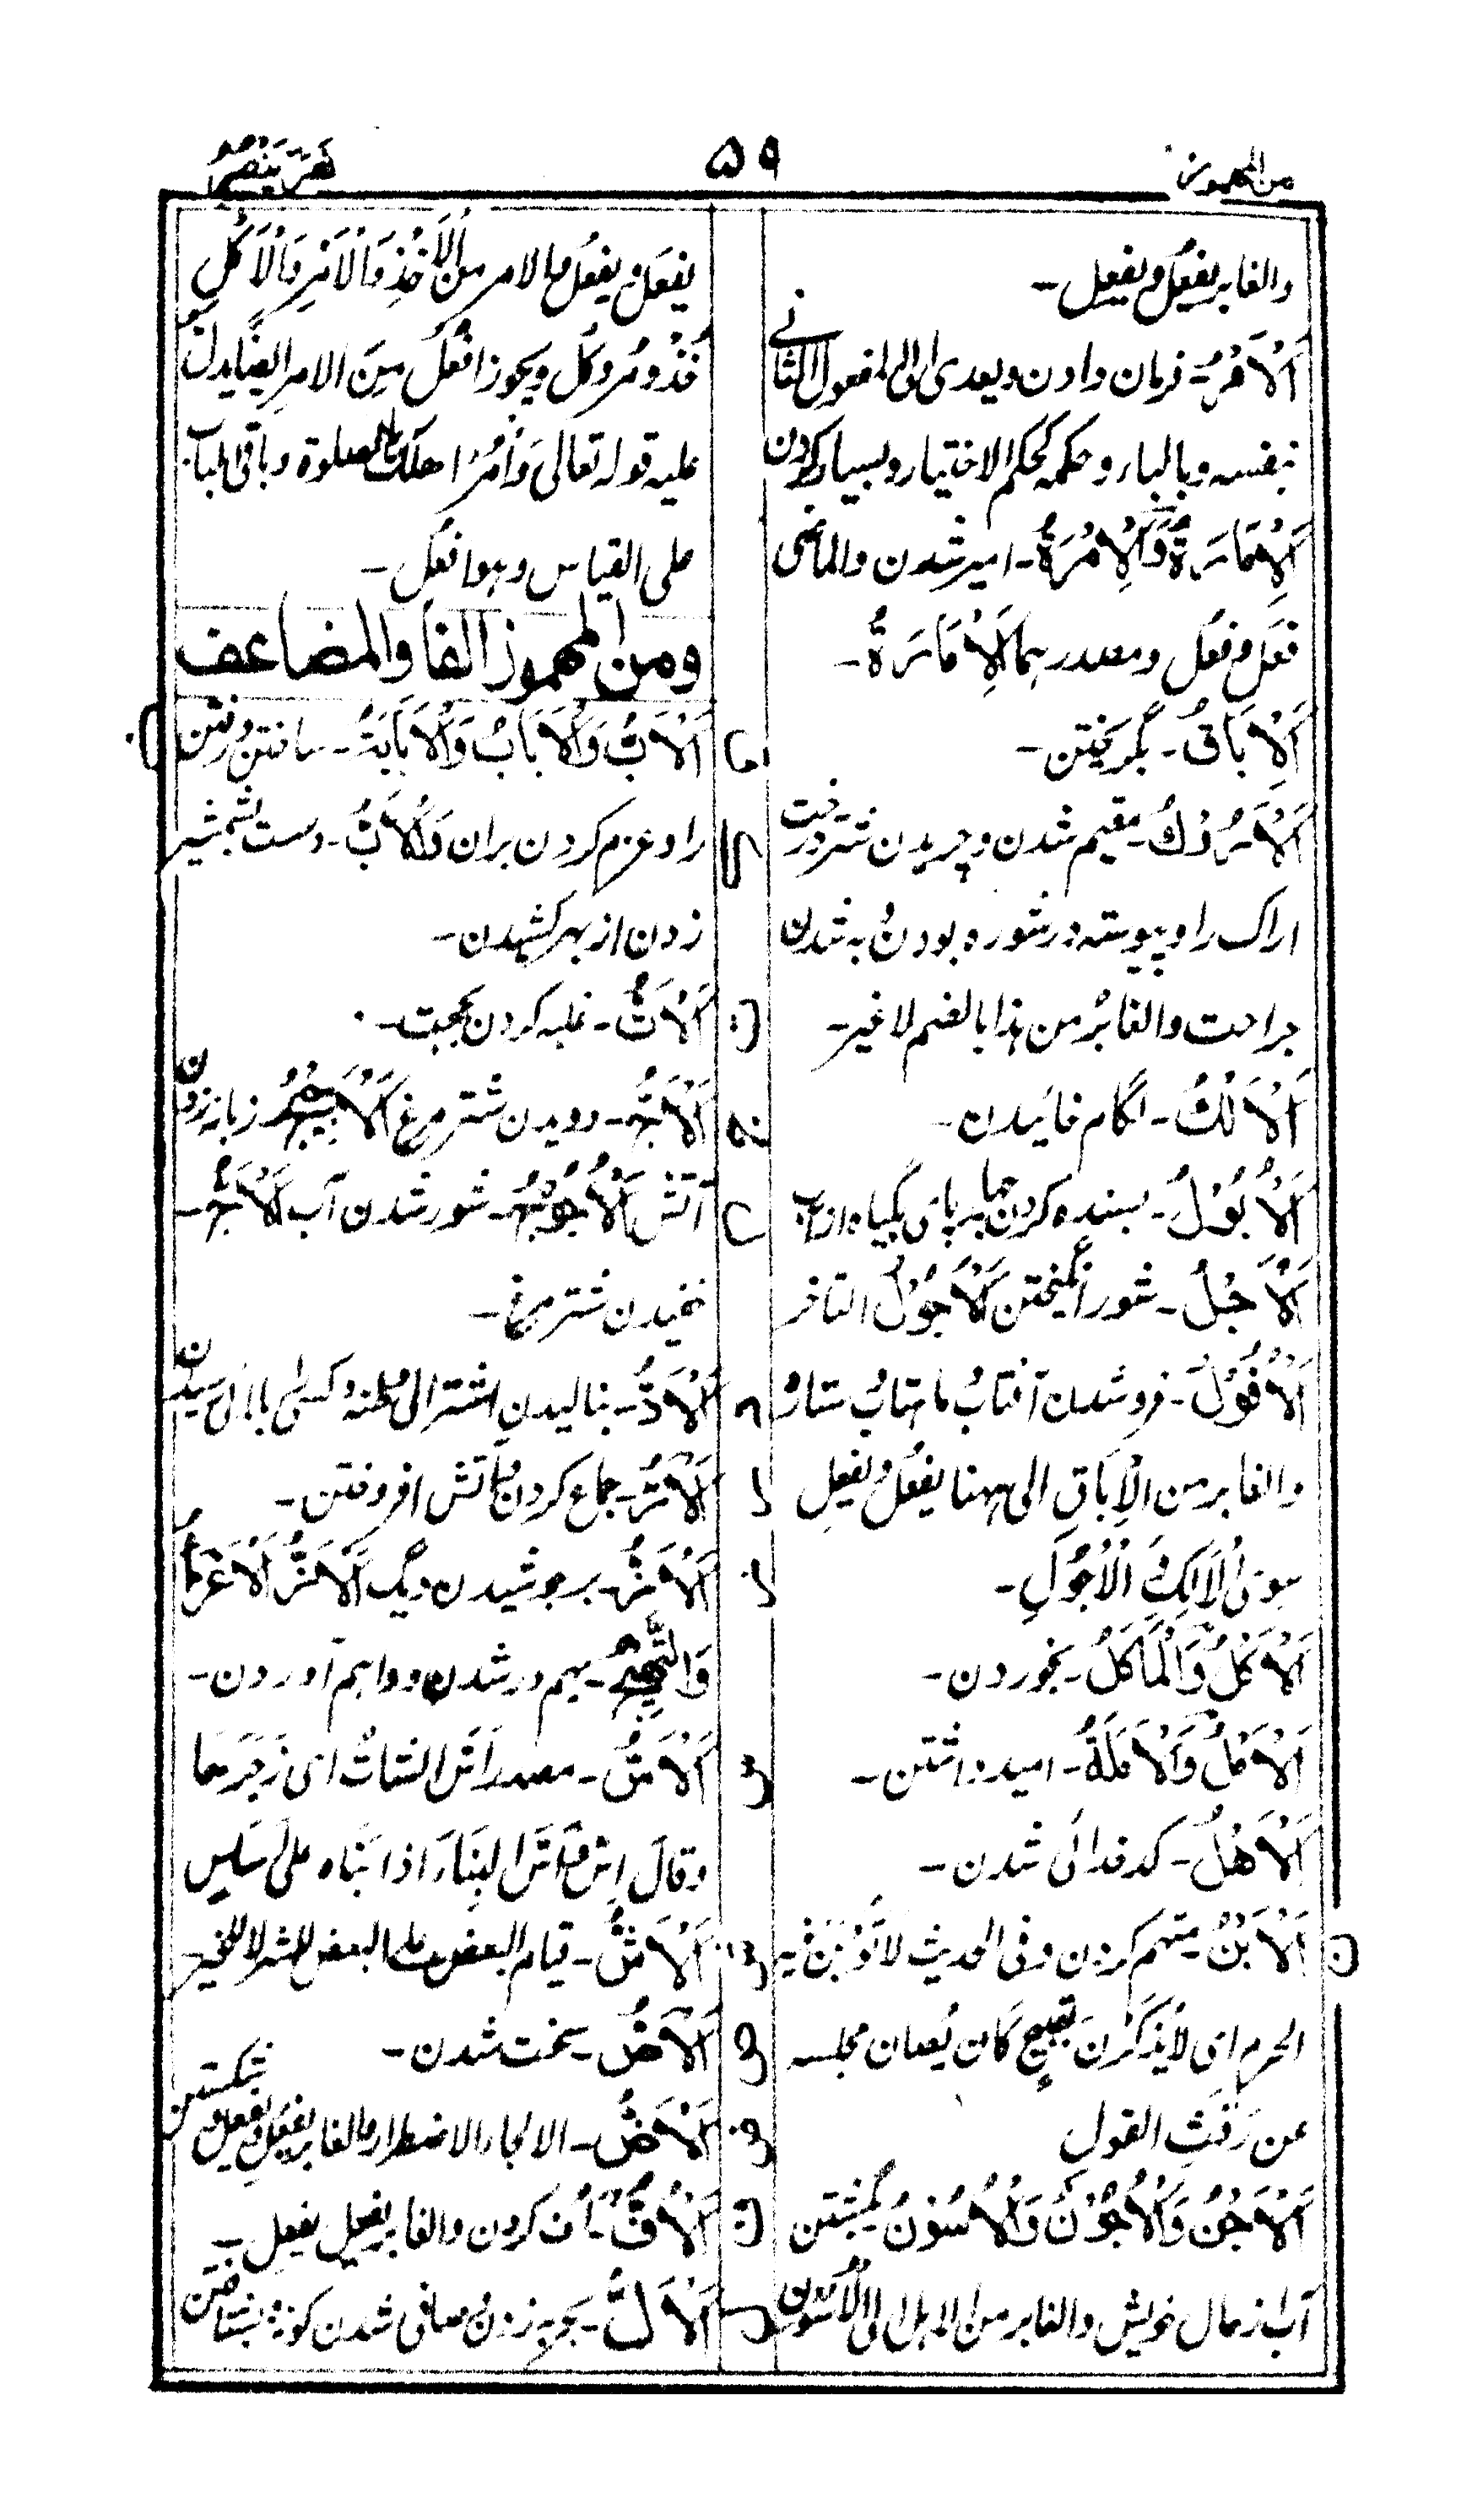 من المهموز
۵۹
نصر ینصر
والغابر یفعُل ویفعِل۔
اَلْاَمْرُ۔ فرمان دادن ویعدی الی المفعول الثانی
بنفسه وبالباء وحکمه کحکم الاختیار وبسیار کردن
اَلْاِمَارَةُ وَالْاِمْرَةُ۔ امیر شدن والماضی
فعَل وفعُل ومصدرهما اَلْاِمَارَةُ۔
اَلْاِبَاقُ۔ بگریختن۔
اَلْاُرُوْكُ۔ مقیم شدن وچریدن شتر درخت
اراک را وپیوسته در شوره بودن وبه شدن
جراحت والغابر من هذا بالضم لاغیر۔
اَلْاَلْكُ۔ لگام خائیدن۔
اَلْاُبُوْلُ۔ بسنده کردن چهارپای بگیاه از آب
اَلْاَجْلُ۔ شور انگیختن اَلْاُجُوْلُ التاخر
اَلْاُفُوْلُ۔ فروشدن آفتاب وماهتاب وستاره
والغابر من الْاِبَاقِ الی ههنا یفعُل ویفعِل
سوی الْاَلْكِ وَالْاُجُوْلِ۔
اَلْاَكْلُ وَالْمَأْكَلُ۔ بخوردن۔
اَلْاَمْلُ وَالْاَمَلَةُ۔ امید داشتن۔
اَلْاَهْلُ۔ کدخدائی شدن۔
اَلْاَبْنُ۔ متهم کردن وفی الحدیث لا تُؤْبَنُ فیه
الحرم ای لا یُذْكَرْنَ بقبیح کان یُصان مجلسه
عن رَفَثِ القول
اَلْاَجْنُ وَالْاُجُوْنُ وَالْاُسُوْنُ بگشتن
آب از حال خویش والغابر من الاهل الی الاُسُوْن
یفعل ویفعُل والامر من الْاَخْذِ وَالْاَمْرِ وَالْاَكْلِ
خُذْ ومُرْ وکُلْ ویجوز اُفْعُل مِنَ الامر ایضًا یدل
علیه قوله تعالی وَأْمُرْ اهلك بالصلوة وباقی الباب
علی القیاس وهو افعل۔
ومن المهموز الفاء والمضاعف
اَلْاَبُّ وَالْاَبَابُ وَالْاَبَابَةُ۔ ساختن رفتن
را وعزم کردن بران وَالْاَبُّ۔ دست بشمشیر
زدن از بهر کشیدن۔
اَلْاَتُّ۔ غلبه کردن بحجت۔
اَلْاَجُّ۔ دویدن شتر مرغ اَلْاَجِیْجُ۔ زبانه زدن
آتش اَلْاُجُوْجُ۔ شور شدن آب اَلْاَجُّ۔
شتر مرغ۔
اَلْاَدُّ۔ بنالیدن اشتر الی
اَلْاَرُّ۔ جماع کردن وآتش افروختن۔
اَلْاَزُّ۔ برجوشیدن دیگ اَلْاَزُّ اَلْاِغْرَاءُ
وَالتَّهْیِیْجُ۔ بهم درشدن وواهم آوردن۔
اَلْاَسُّ۔ مصدر اَسَّ الشاة ای زَجَرَهَا
وقال اِسْ اِسْ واَسَّ البِنَاءَ اذا بَنَاه علی اَسَاسٍ
اَلْاَشُّ۔ قیام البعض علی البعض للشر لا للخیر
اَلْاَصُّ۔ سخت شدن۔
اَلْاَضُّ۔ الالجاء والاضطرار والغابر یفعُل ویفعِل وشکستن
اَلْاُفُّ۔ اُف کردن والغابر یفعُل یفعِل۔
اَلْاَلُّ۔ بحربه زدن وصافی شدن گونه وشتافتن